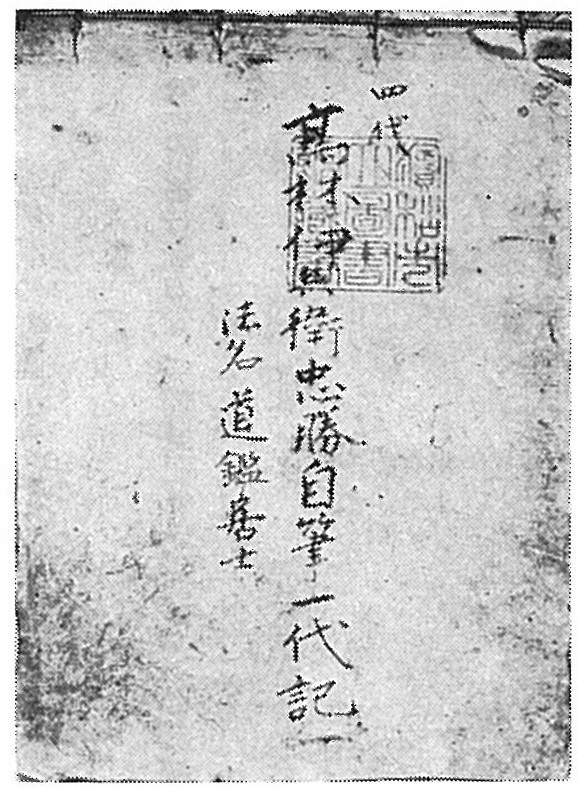 四代
髙林伊兵衛忠勝自筆一代記一
法名道鑑居士